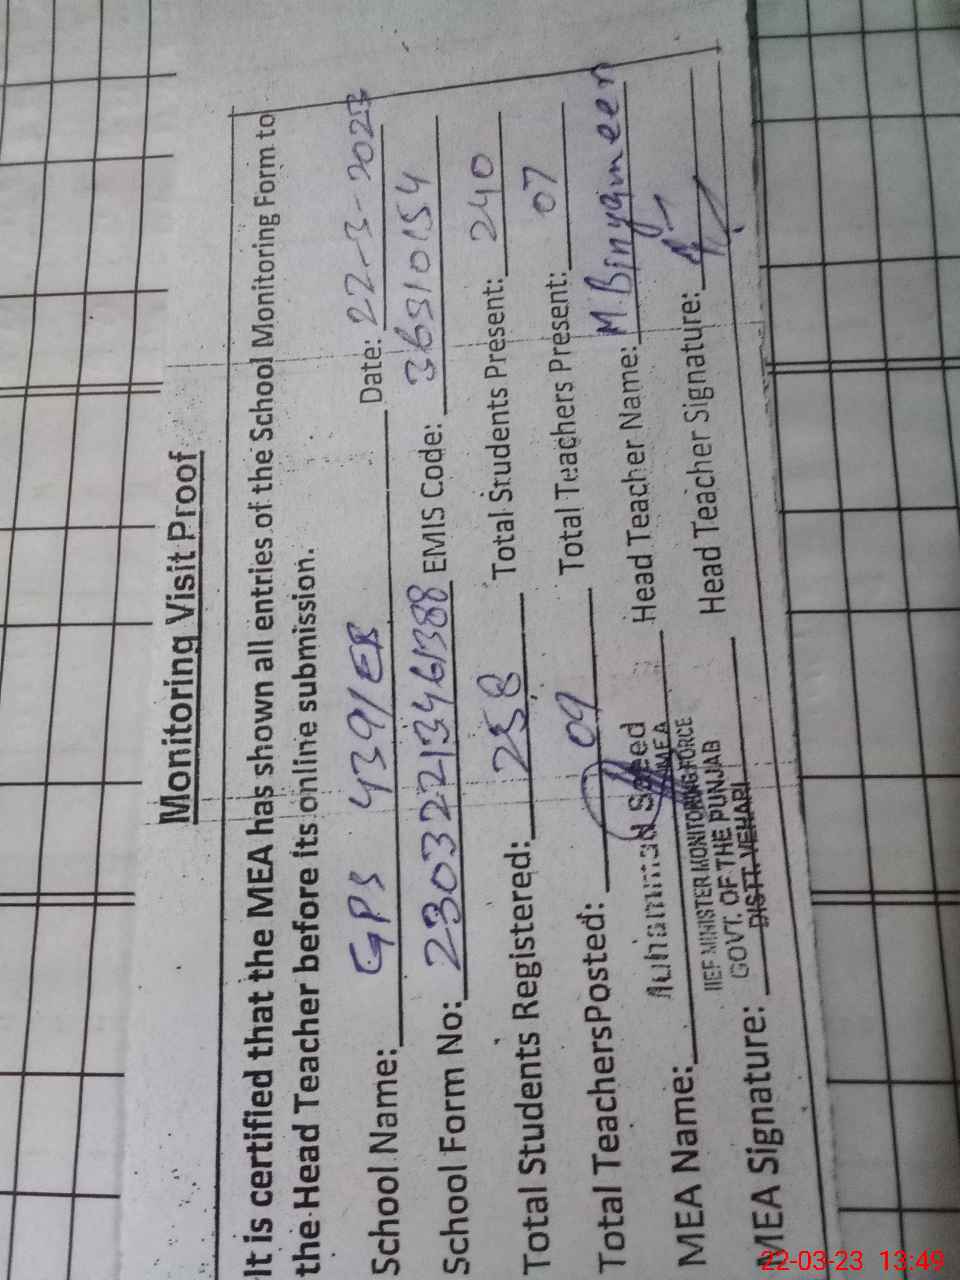 Monitoring Visit Proof
It is certified that the MEA has shown all entries of the School Monitoring Form to
the Head Teacher before its online submission.
School Name: GPS 439/EB Date: 22-3-2023
School Form No: 23032213461388 EMIS Code: 36310154
Total Students Registered: 258 Total Students Present: 240
Total TeachersPosted: 09 Total Teachers Present: 07
MEA Name: Muhammad Saeed Head Teacher Name: M. Binyameen
MEA
HIEF MINISTER MONITORING FORCE
GOVT. OF THE PUNJAB
DISTT. VEHARI
MEA Signature: Head Teacher Signature:
22-03-23 13:49